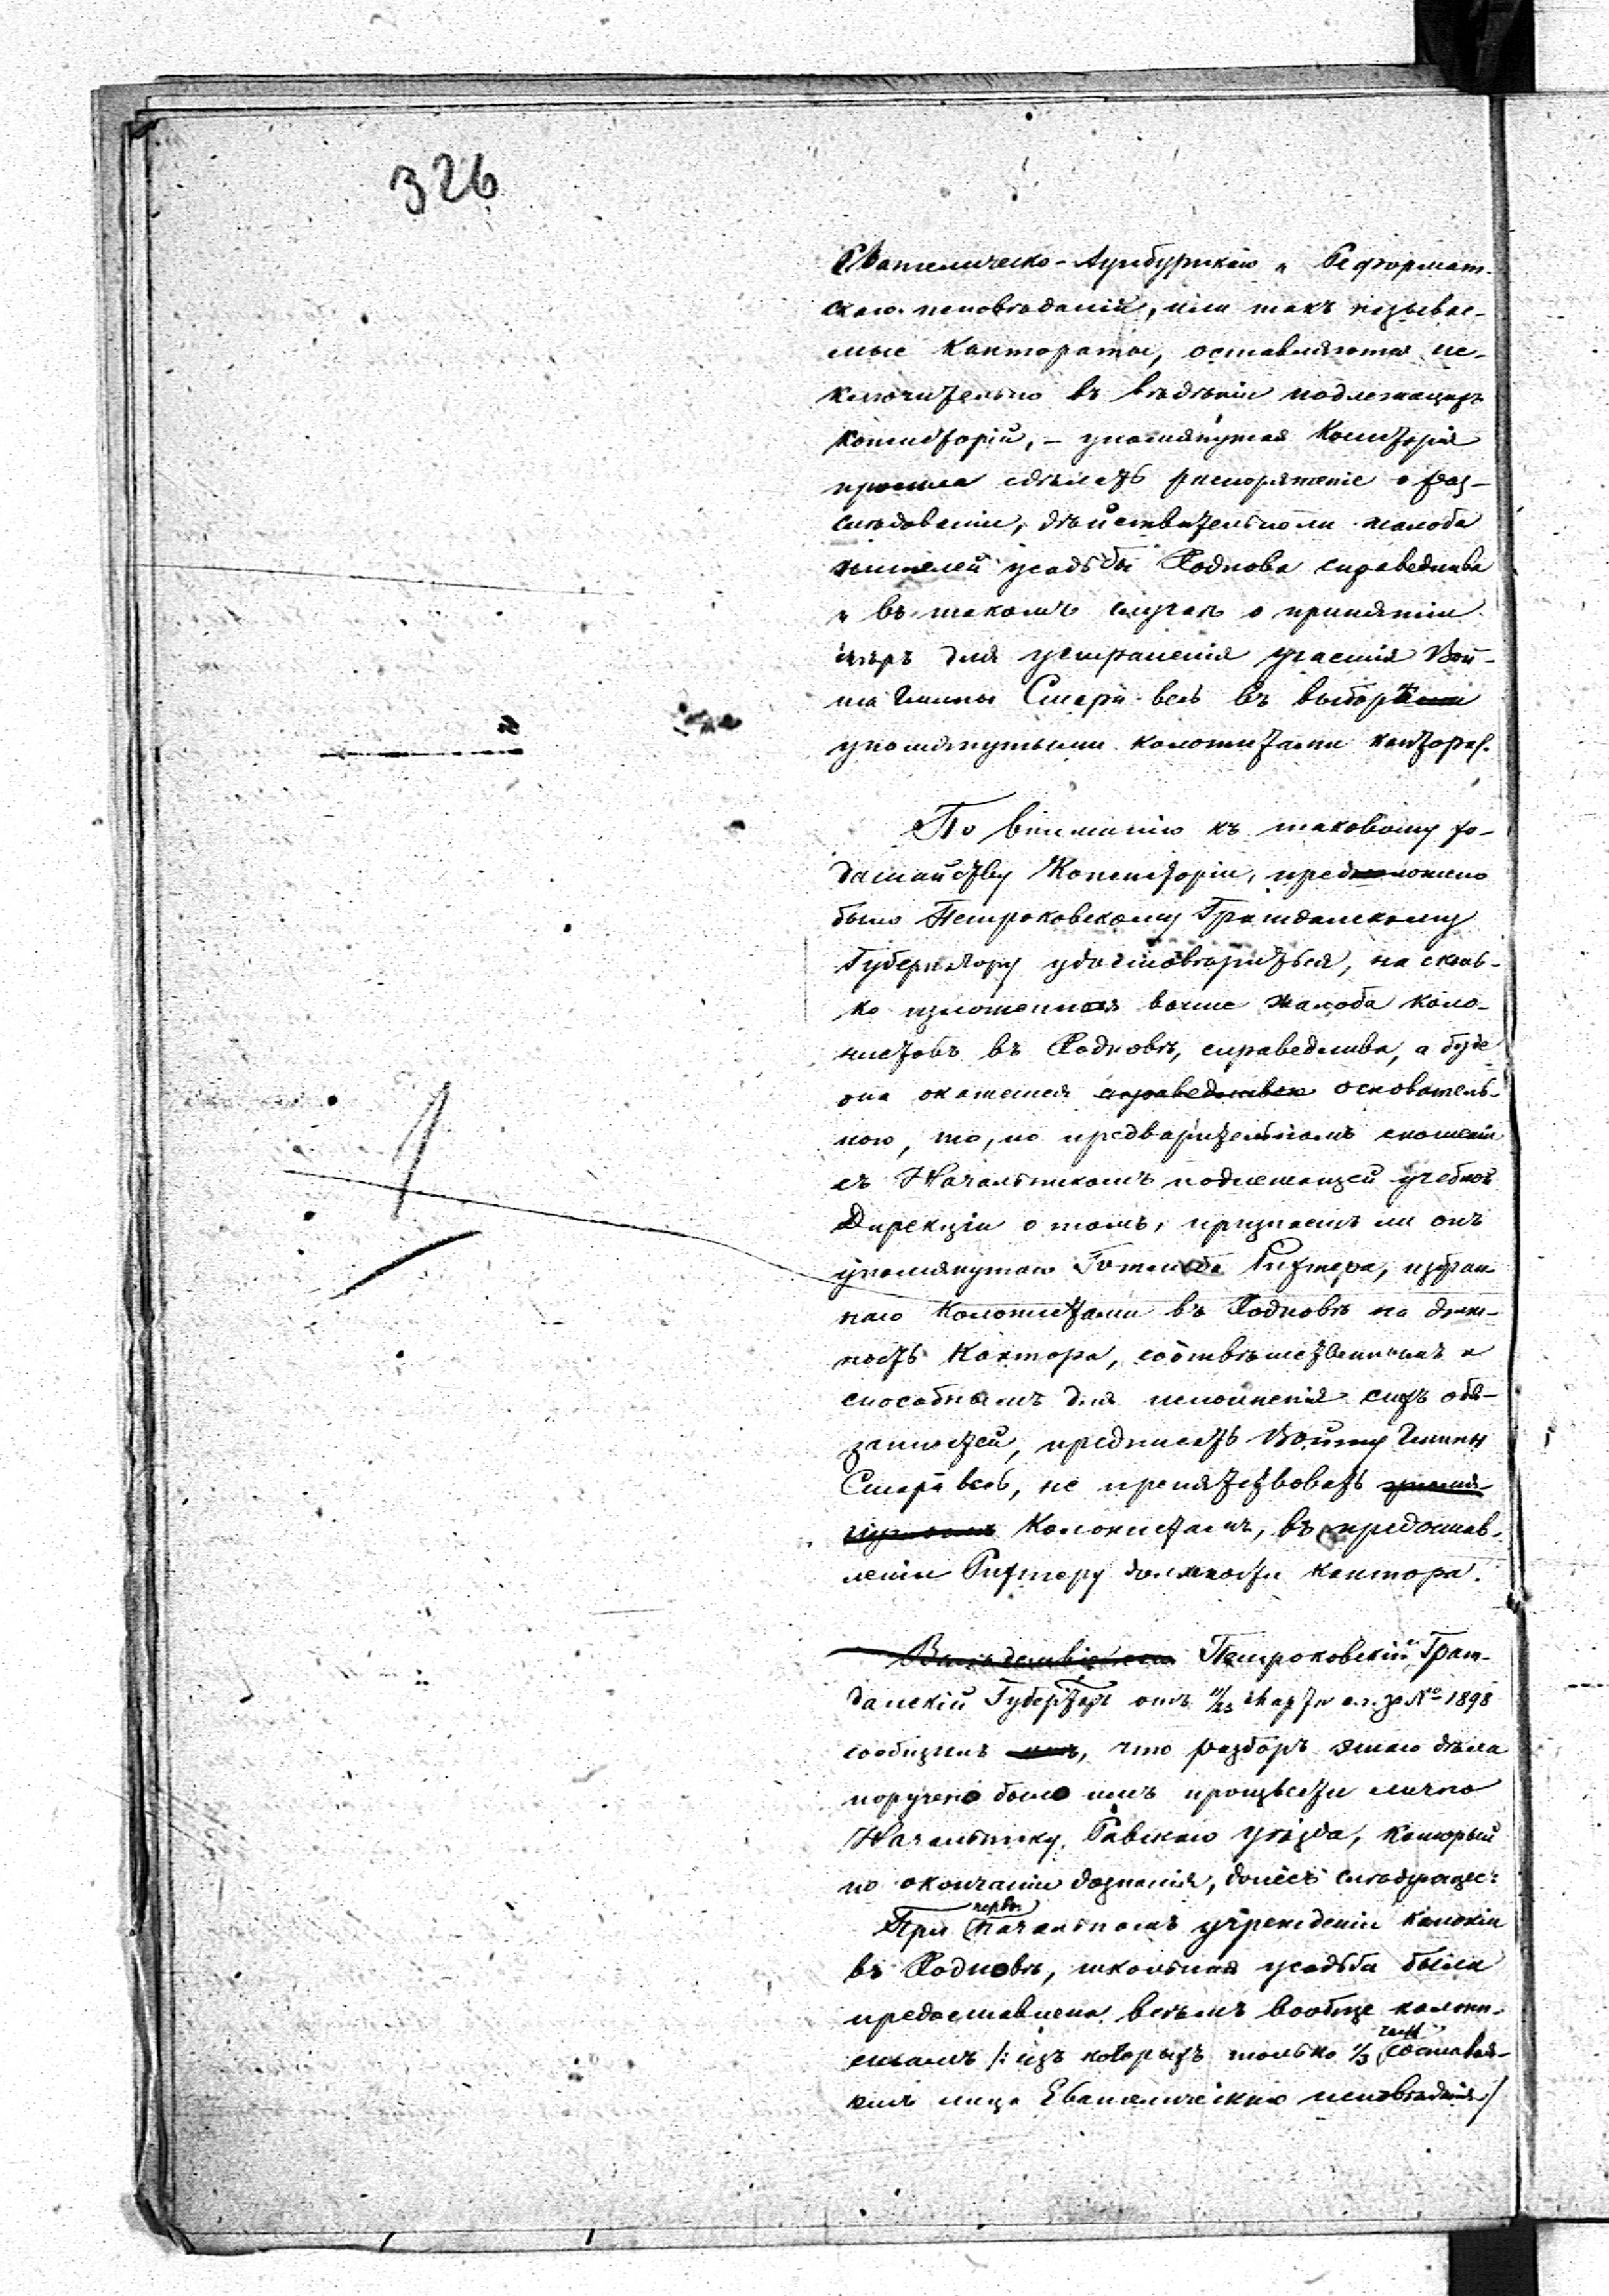 326
Евангелическо-Аугсбургскаго и Реформат-
скаго исповѣданій, или такъ называе-
мые Кантораты, оставляются ис-
ключительно въ вѣдѣніи подлежащихъ
консисторій, – упомянутая Консисторія
просила сдѣлать распоряженіе о раз-
слѣдованіи, дѣйствительно ли жалоба
жителей усадьбы Родново справедлива
и въ такомъ случаѣ о принятіи
мѣръ для устраненія участія Вой-
та Гмины Стара-весь въ выборѣ
упомянутыми колонистами кантора.
По вниманію къ таковому хо-
датайству Консисторіи, предложено
было Петроковскому Гражданскому
Губернатору удостовѣриться, на сколь-
ко изложенная выше жалоба коло-
нистовъ въ Родновѣ, справедлива, а буде
она окажется справедливою основатель-
ною, то, по предварительномъ сношеніи
съ Начальникомъ подлежащей учебной
Дирекціи о томъ, признаетъ ли онъ
упомянутаго Готлиба Рихтера, избран-
наго Колонистами въ Родновѣ на долж-
ность Кантора, соотвѣтственнымъ и
способнымъ для исполненія сихъ обя-
занностей, предписать Войту Гмины
Стара весь, не препятствовать упомя-
нутымъ Колонистамъ, въ предостав-
леніи Рихтеру должности кантора.
Вслѣдствіе сего Петроковскій Граж-
данскій Губернаторъ отъ 11/23 Марта с. г. за № 1898
сообщилъ мнѣ, что разборъ этаго дѣла
поручено было имъ произвести лично
Начальнику Равскаго уѣзда, который
по окончаніи дознанія, донесъ слѣдующее:
При первоначальномъ учрежденіи колоніи
въ Родновѣ, школьная усадьба была
предоставлена всѣмъ вообще колони-
стамъ /: изъ которыхъ только 1/3 часть составля-
ютъ лица Евангелическаго исповѣданія :/